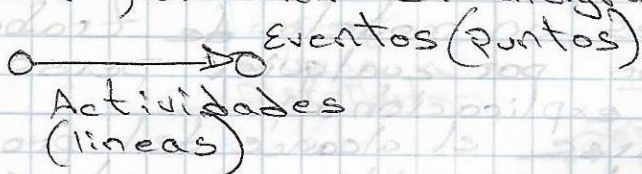 Eventos (puntos)
Actividades
(lineas)